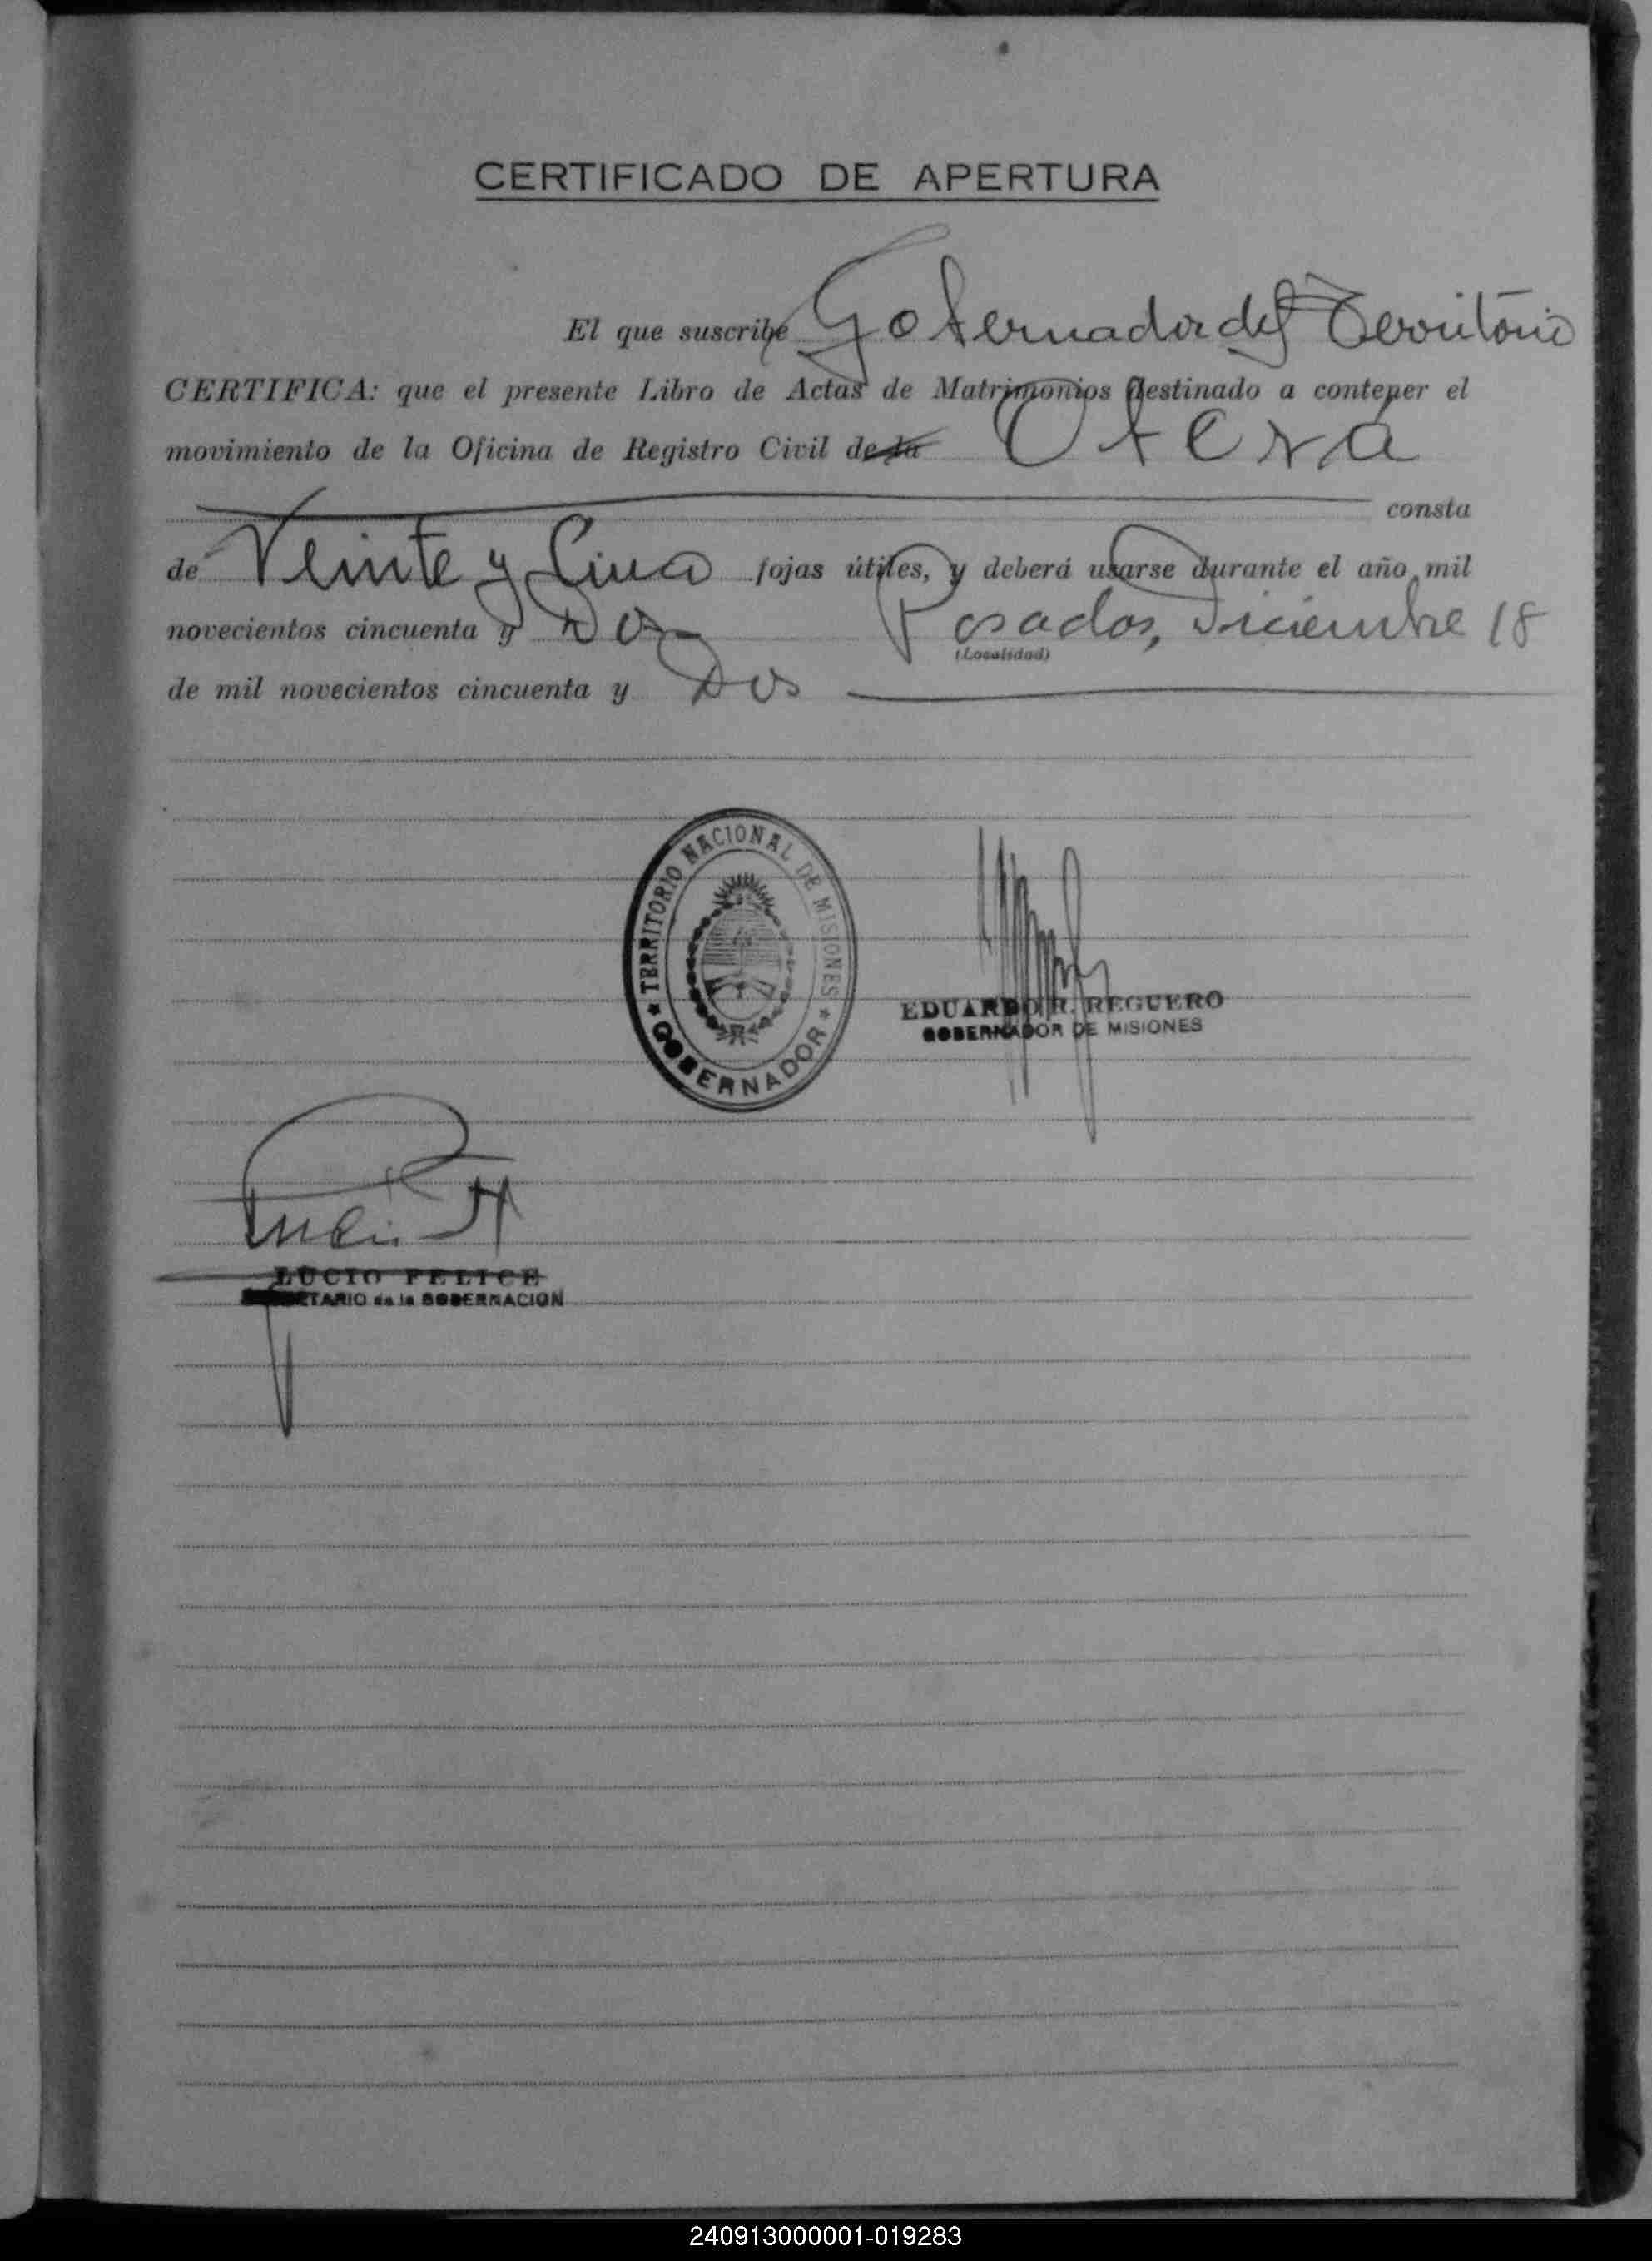 CERTIFICADO DE APERTURA
El que suscribe Gobernador del Territorio
CERTIFICA: que el presente Libro de Actas de Matrimonios destinado a contener el
movimiento de la Oficina de Registro Civil de la Oberá
consta
de Veinte y Cinco fojas útiles, y deberá usarse durante el año mil
novecientos cincuenta y Dos Posadas, Diciembre 18
(Localidad)
de mil novecientos cincuenta y Dos
TERRITORIO NACIONAL DE MISIONES
GOBERNADOR
EDUARDO R. REGUERO
GOBERNADOR DE MISIONES
LUCIO FELICE
SECRETARIO de la GOBERNACION
240913000001-019283